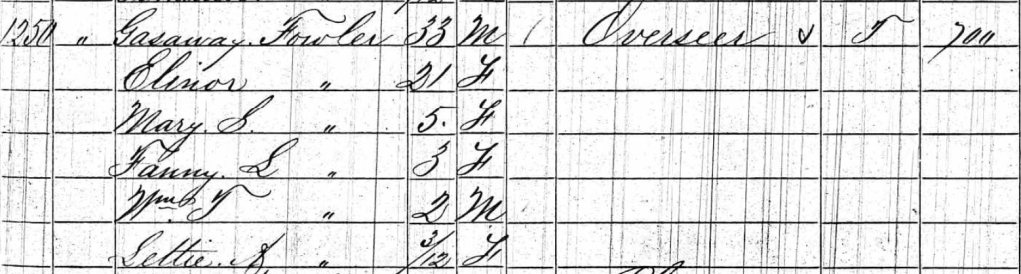 1250 " Gasaway. Fowler 33 M Overseer T 700
Elinor " 21 F
Mary. S. " 5. F
Fanny. L " 3 F
Wm. T " 2 M
Lettie. A, " 3/12 F